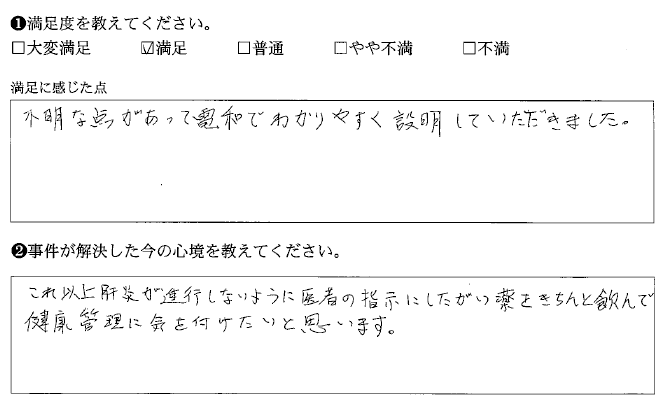 ❶満足度を教えてください。
□大変満足 ☑満足 □普通 □やや不満 □不満
満足に感じた点
不明な点があって電和でわかりやすく説明していただきました。
❷事件が解決した今の心境を教えてください。
これ以上肝炎が進行しないように医者の指示にしたがい薬をきちんと飲んで
健康管理に気を付けたいと思います。